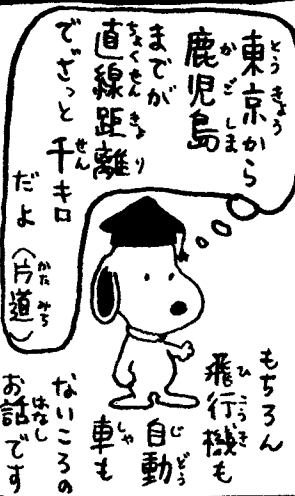 東京から
鹿児島
までが
直線距離
でざっと千キロ
だよ(片道)
もちろん
飛行機も
自動
車も
ないころの
お話です